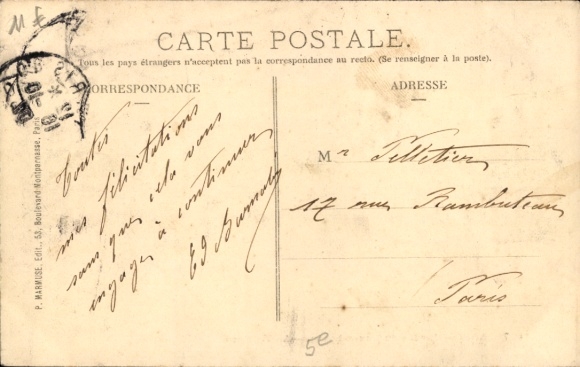 11 €
CARTE POSTALE.
Tous les pays étrangers n'acceptent pas la correspondance au recto. (Se renseigner à la poste).
CORRESPONDANCE
ADRESSE
Toutes
mes félicitations
sans que cela vous
engage à continuer
Ed
Mr Pelletier
17 rue Rambuteau
Paris
5e
P. MARMUSE, Edit., 53, Boulevard Montparnasse, Paris